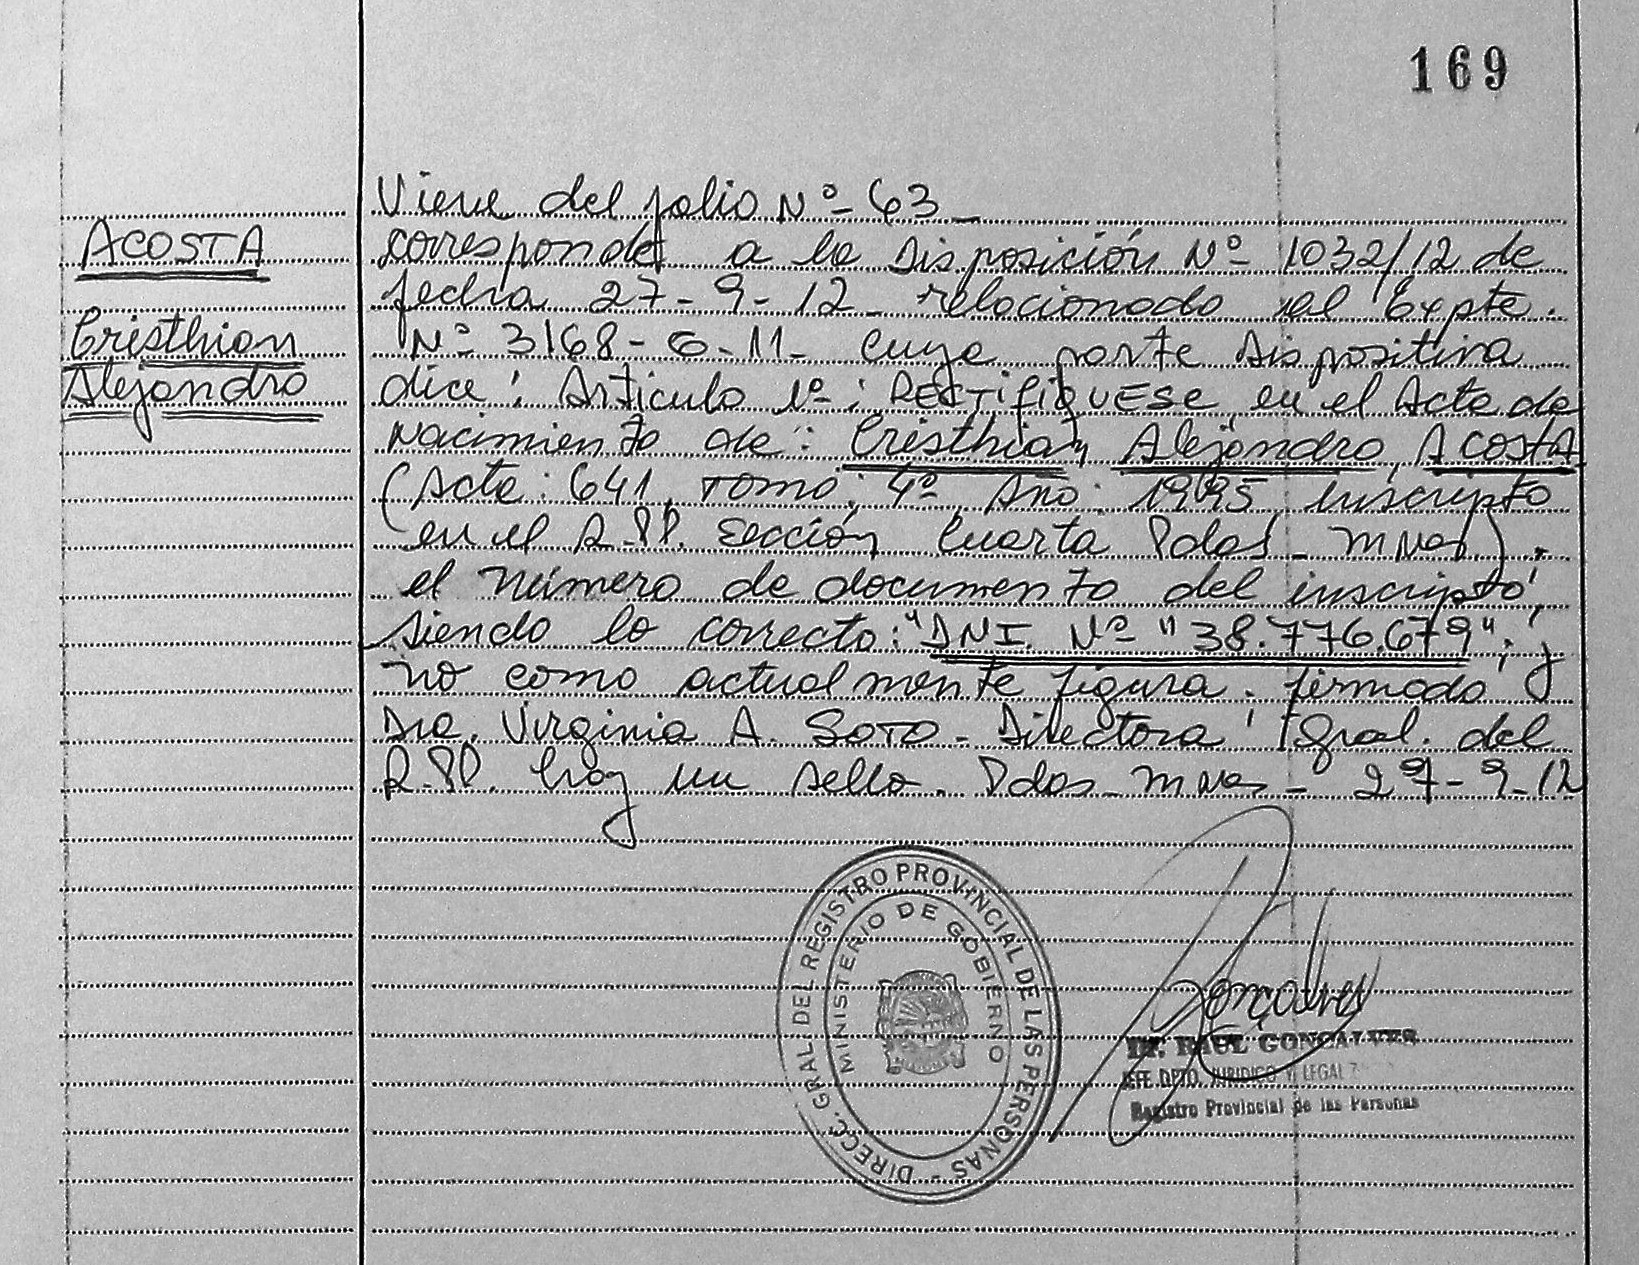 169
Viene del folio Nº- 63-
ACOSTA
Cristhian
Alejandro
corresponde a la Disposición Nº 1032/12 de
fecha 27-9-12- relacionado al Expte.
Nº 3168-G-11- cuya parte dispositiva
dice: Articulo 1º: RECTIFIQUESE en el Acta de
Nacimiento de: Cristhian Alejandro ACOSTA
(Acta: 641, Tomo: 4º, Año: 1995, inscripto
en el R.PP. Sección Cuarta Pdas- Mnes).
el número de documento del inscripto,
siendo lo correcto: "DNI. Nº "38.776.679"; y
no como actualmente figura. firmado
Dra. Virginia A. SOTO- Directora Gral. del
R.PP. hay un sello. Pdas- Mnes- 27-9-12
DIRECC. GRAL. DEL REGISTRO PROVINCIAL DE LAS PERSONAS -
MINISTERIO DE GOBIERNO
Gonçalves
Dr. RAUL GONÇALVES
JEFE DPTO. JURIDICO Y LEGAL
Registro Provincial de las Personas